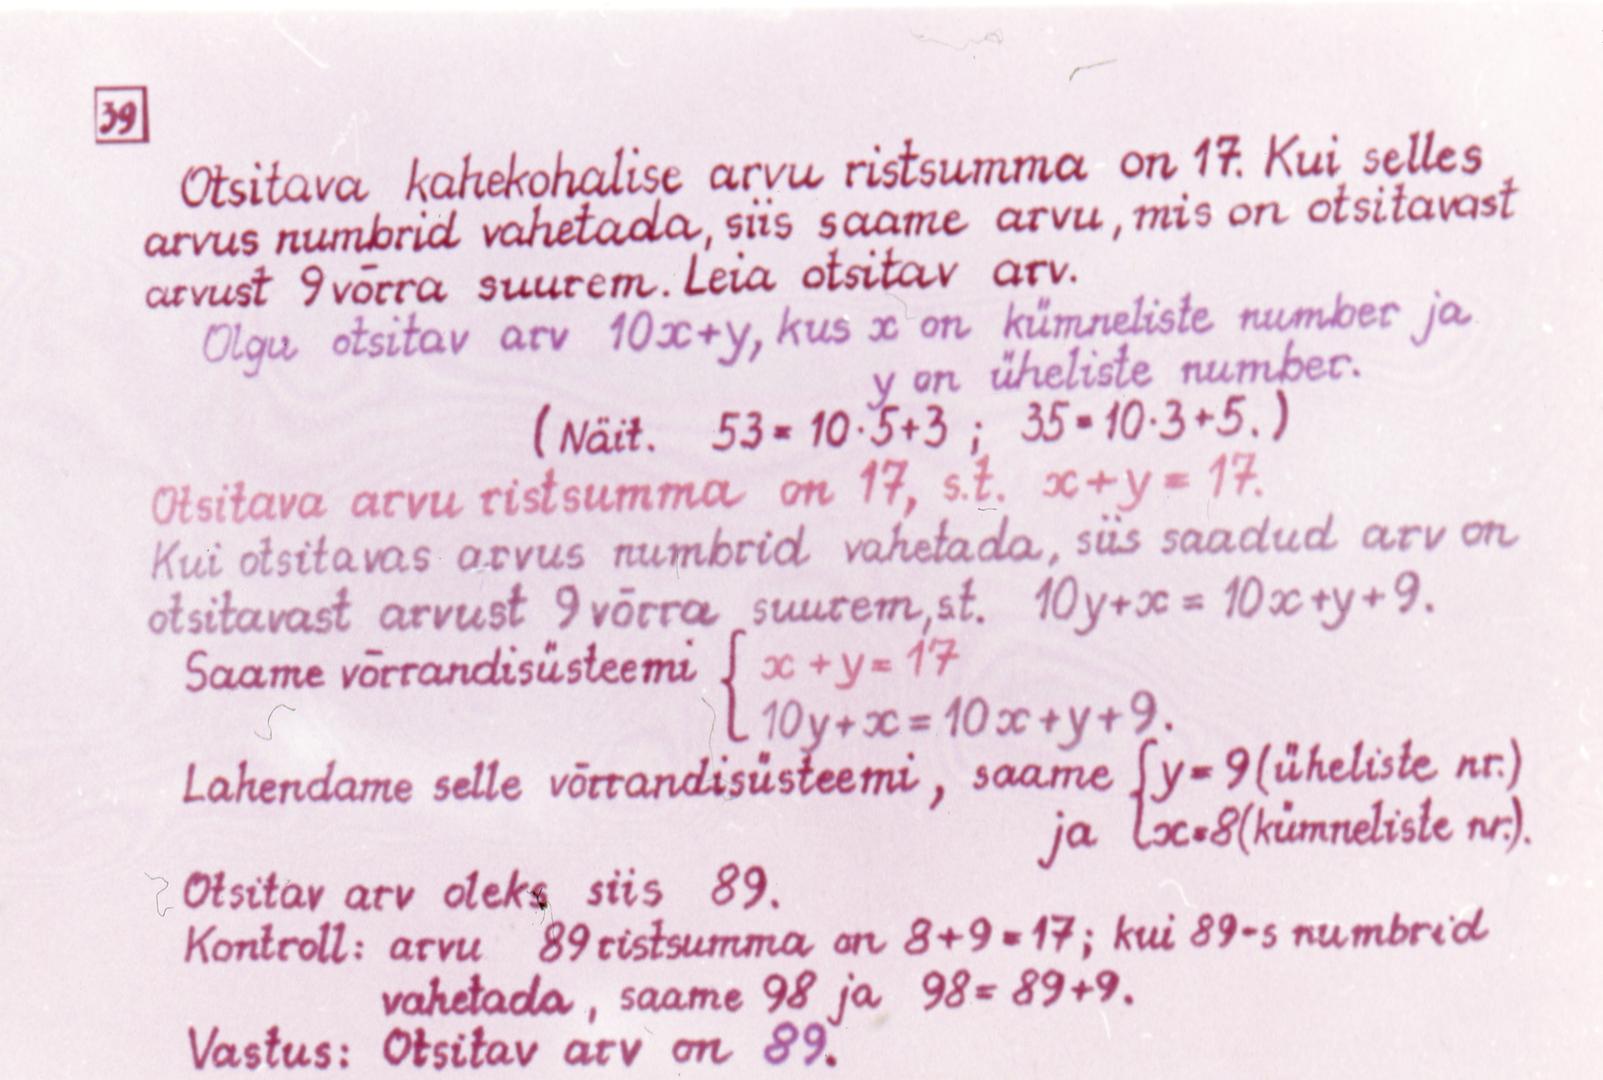 39
Otsitava kahekohalise arvu ristsumma on 17. Kui selles
arvus numbrid vahetada, siis saame arvu, mis on otsitavast
arvust 9 võrra suurem. Leia otsitav arv.
Olgu otsitav arv 10x+y, kus x on kümneliste number ja
y on üheliste number.
(Näit. 53=10·5+3 ; 35=10·3+5.)
Otsitava arvu ristsumma on 17, s.t. x+y=17.
Kui otsitavas arvus numbrid vahetada, siis saadud arv on
otsitavast arvust 9 võrra suurem, s.t. 10y+x=10x+y+9.
Saame võrrandisüsteemi { x+y=17
10y+x=10x+y+9.
Lahendame selle võrrandisüsteemi, saame { y=9 (üheliste nr.)
ja x=8 (kümneliste nr.).
Otsitav arv oleks siis 89.
Kontroll: arvu 89 ristsumma on 8+9=17; kui 89-s numbrid
vahetada, saame 98 ja 98=89+9.
Vastus: Otsitav arv on 89.